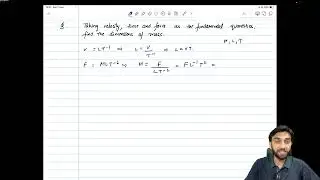 Q Taking velocity, time and force as the fundamental quantities,
find the dimensions of mass.
M, L, T
V = LT⁻¹ ⇒ L = V / T⁻¹ ⇒ L = VT
F = MLT⁻² ⇒ M = F / LT⁻² = FL⁻¹T² =